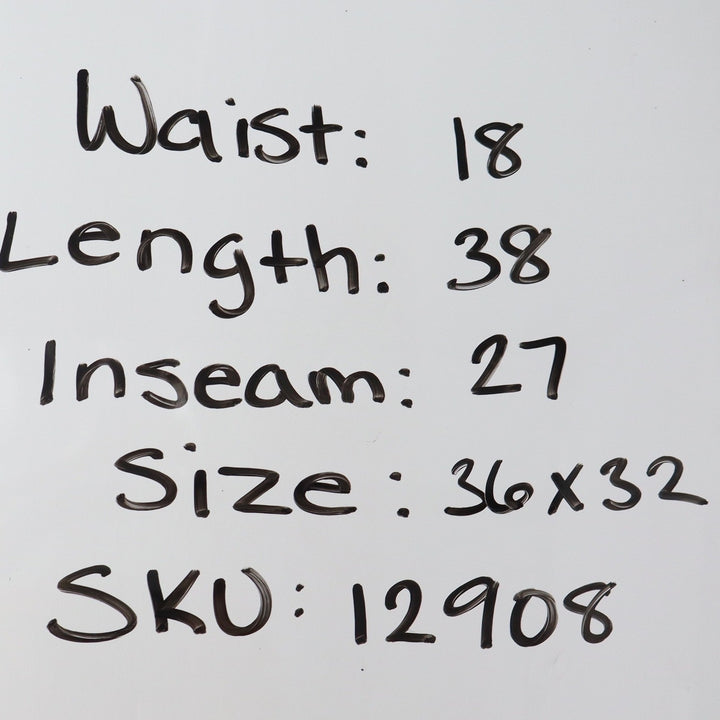 Waist: 18
Length: 38
Inseam: 27
Size: 36x32
SKU: 12908